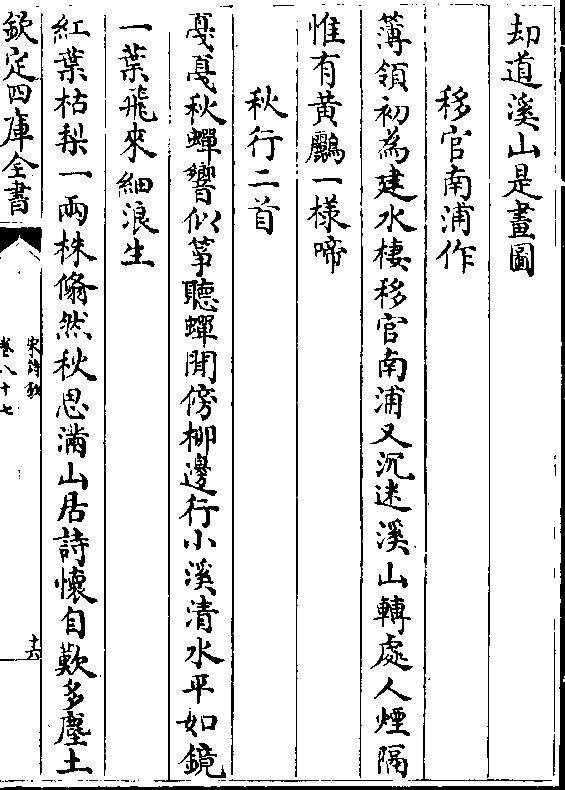 却道溪山是畫圖
移官南浦作
簿領初為建水棲移官南浦又沉迷溪山轉處人煙隔
惟有黃鸝一様啼
秋行二首
戞戞秋蟬響似筝聽蟬閒傍柳邊行小溪清水平如鏡
一葉飛來細浪生
紅葉枯梨一兩株翛然秋思滿山居詩懷自歎多塵土
欽定四庫全書
宋詩鈔
卷八十七
十六